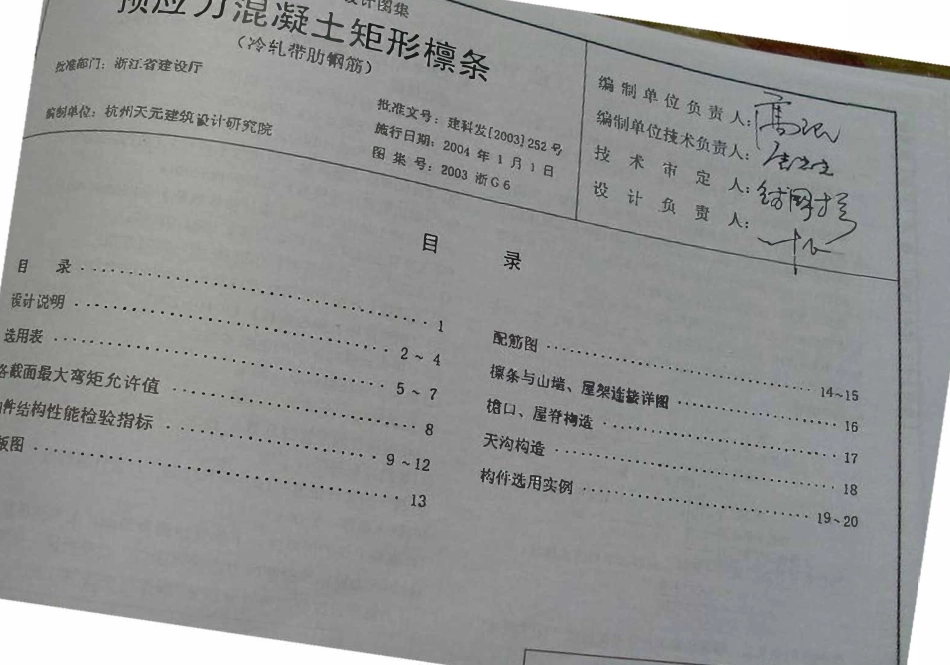 设计图集
预应力混凝土矩形檩条
（冷轧带肋钢筋）
批准部门：浙江省建设厅
编制单位：杭州天元建筑设计研究院
批准文号：建科发[2003]252号
施行日期：2004年1月1日
图集号：2003浙G6
编制单位负责人：
编制单位技术负责人：
技术审定人：
设计负责人：
目 录
目 录 1
设计说明 2～4
选用表 5～7
各截面最大弯矩允许值 8
件结构性能检验指标 9～12
板图 13
配筋图 14～15
檩条与山墙、屋架连接详图 16
檐口、屋脊构造 17
天沟构造 18
构件选用实例 19～20